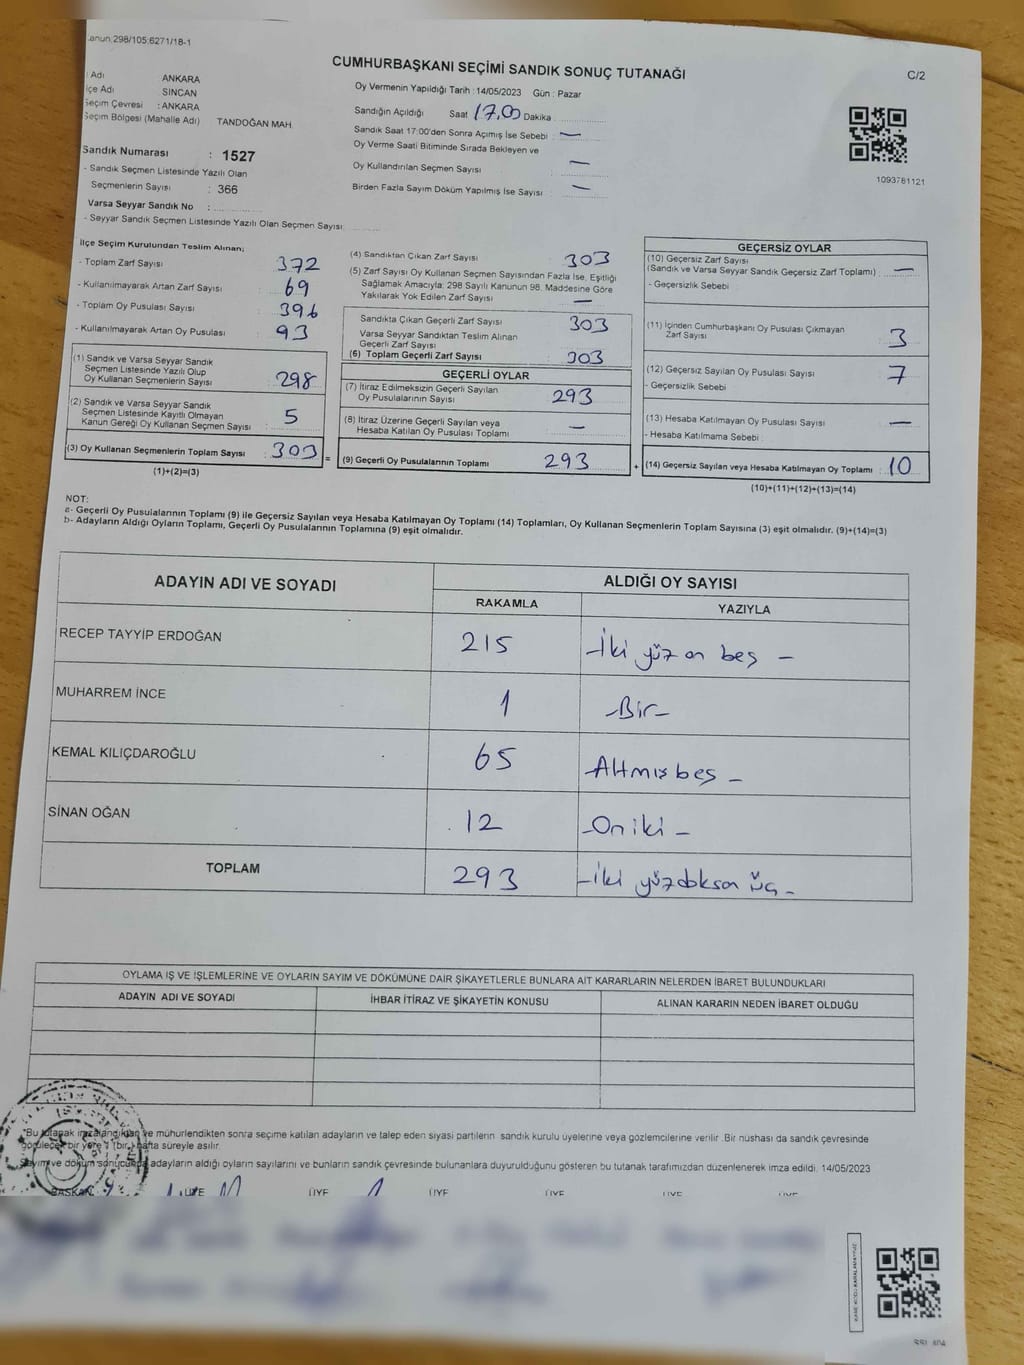 anun:298/105:6271/18-1
CUMHURBAŞKANI SEÇİMİ SANDIK SONUÇ TUTANAĞI
C/2
İ Adı ANKARA
İçe Adı SİNCAN
Seçim Çevresi : ANKARA
Seçim Bölgesi (Mahalle Adı) TANDOĞAN MAH.
Sandık Numarası : 1527
- Sandık Seçmen Listesinde Yazılı Olan
Seçmenlerin Sayısı : 366
Varsa Seyyar Sandık No :
- Seyyar Sandık Seçmen Listesinde Yazılı Olan Seçmen Sayısı:
Oy Vermenin Yapıldığı Tarih : 14/05/2023 Gün : Pazar
Sandığın Açıldığı Saat 17,00 Dakika
Sandık Saat 17:00'den Sonra Açımış İse Sebebi : —
Oy Verme Saati Bitiminde Sırada Bekleyen ve
Oy Kullandırılan Seçmen Sayısı : —
Birden Fazla Sayım Döküm Yapılmış İse Sayısı : —
1093781121
İlçe Seçim Kurulundan Teslim Alınan;
- Toplam Zarf Sayısı : 372
- Kullanılmayarak Artan Zarf Sayısı : 69
- Toplam Oy Pusulası Sayısı : 396
- Kullanılmayarak Artan Oy Pusulası : 93
(1) Sandık ve Varsa Seyyar Sandık
Seçmen Listesinde Yazılı Olup
Oy Kullanan Seçmenlerin Sayısı : 298
(2) Sandık ve Varsa Seyyar Sandık
Seçmen Listesinde Kayıtlı Olmayan
Kanun Gereği Oy Kullanan Seçmen Sayısı : 5
(3) Oy Kullanan Seçmenlerin Toplam Sayısı : 303
(1)+(2)=(3)
(4) Sandıktan Çıkan Zarf Sayısı : 303
(5) Zarf Sayısı Oy Kullanan Seçmen Sayısından Fazla İse, Eşitliği
Sağlamak Amacıyla; 298 Sayılı Kanunun 98. Maddesine Göre
Yakılarak Yok Edilen Zarf Sayısı : —
Sandıkta Çıkan Geçerli Zarf Sayısı : 303
Varsa Seyyar Sandıktan Teslim Alınan
Geçerli Zarf Sayısı
(6) Toplam Geçerli Zarf Sayısı : 303
GEÇERLİ OYLAR
(7) İtiraz Edilmeksizin Geçerli Sayılan
Oy Pusulalarının Sayısı : 293
(8) İtiraz Üzerine Geçerli Sayılan veya
Hesaba Katılan Oy Pusulası Toplamı : —
= (9) Geçerli Oy Pusulalarının Toplamı : 293
GEÇERSİZ OYLAR
(10) Geçersiz Zarf Sayısı
(Sandık ve Varsa Seyyar Sandık Geçersiz Zarf Toplamı) : —
- Geçersizlik Sebebi
(11) İçinden Cumhurbaşkanı Oy Pusulası Çıkmayan
Zarf Sayısı : 3
(12) Geçersiz Sayılan Oy Pusulası Sayısı : 7
- Geçersizlik Sebebi
(13) Hesaba Katılmayan Oy Pusulası Sayısı : —
- Hesaba Katılmama Sebebi
+ (14) Geçersiz Sayılan veya Hesaba Katılmayan Oy Toplamı : 10
(10)+(11)+(12)+(13)=(14)
NOT:
a- Geçerli Oy Pusulalarının Toplamı (9) ile Geçersiz Sayılan veya Hesaba Katılmayan Oy Toplamı (14) Toplamları, Oy Kullanan Seçmenlerin Toplam Sayısına (3) eşit olmalıdır. (9)+(14)=(3)
b- Adayların Aldığı Oyların Toplamı, Geçerli Oy Pusulalarının Toplamına (9) eşit olmalıdır.
ADAYIN ADI VE SOYADI ALDIĞI OY SAYISI
RAKAMLA YAZIYLA
RECEP TAYYİP ERDOĞAN 215 -İki yüz on beş -
MUHARREM İNCE 1 -Bir-
KEMAL KILIÇDAROĞLU 65 Altmışbeş -
SİNAN OĞAN 12 -On iki -
TOPLAM 293 -iki yüzdoksan üç-
OYLAMA İŞ VE İŞLEMLERİNE VE OYLARIN SAYIM VE DÖKÜMÜNE DAİR ŞİKAYETLERLE BUNLARA AİT KARARLARIN NELERDEN İBARET BULUNDUKLARI
ADAYIN ADI VE SOYADI İHBAR İTİRAZ VE ŞİKAYETİN KONUSU ALINAN KARARIN NEDEN İBARET OLDUĞU
"Bu tutanak imzalandıktan ve mühürlendikten sonra seçime katılan adayların ve talep eden siyasi partilerin sandık kurulu üyelerine veya gözlemcilerine verilir. Bir nüshası da sandık çevresinde
görülecek bir yere 1 (bir) hafta süreyle asılır.
Sayım ve döküm sonucunda adayların aldığı oyların sayılarını ve bunların sandık çevresinde bulunanlara duyurulduğunu gösteren bu tutanak tarafımızdan düzenlenerek imza edildi. 14/05/2023
BAŞKAN ÜYE ÜYE ÜYE ÜYE ÜYE ÜYE